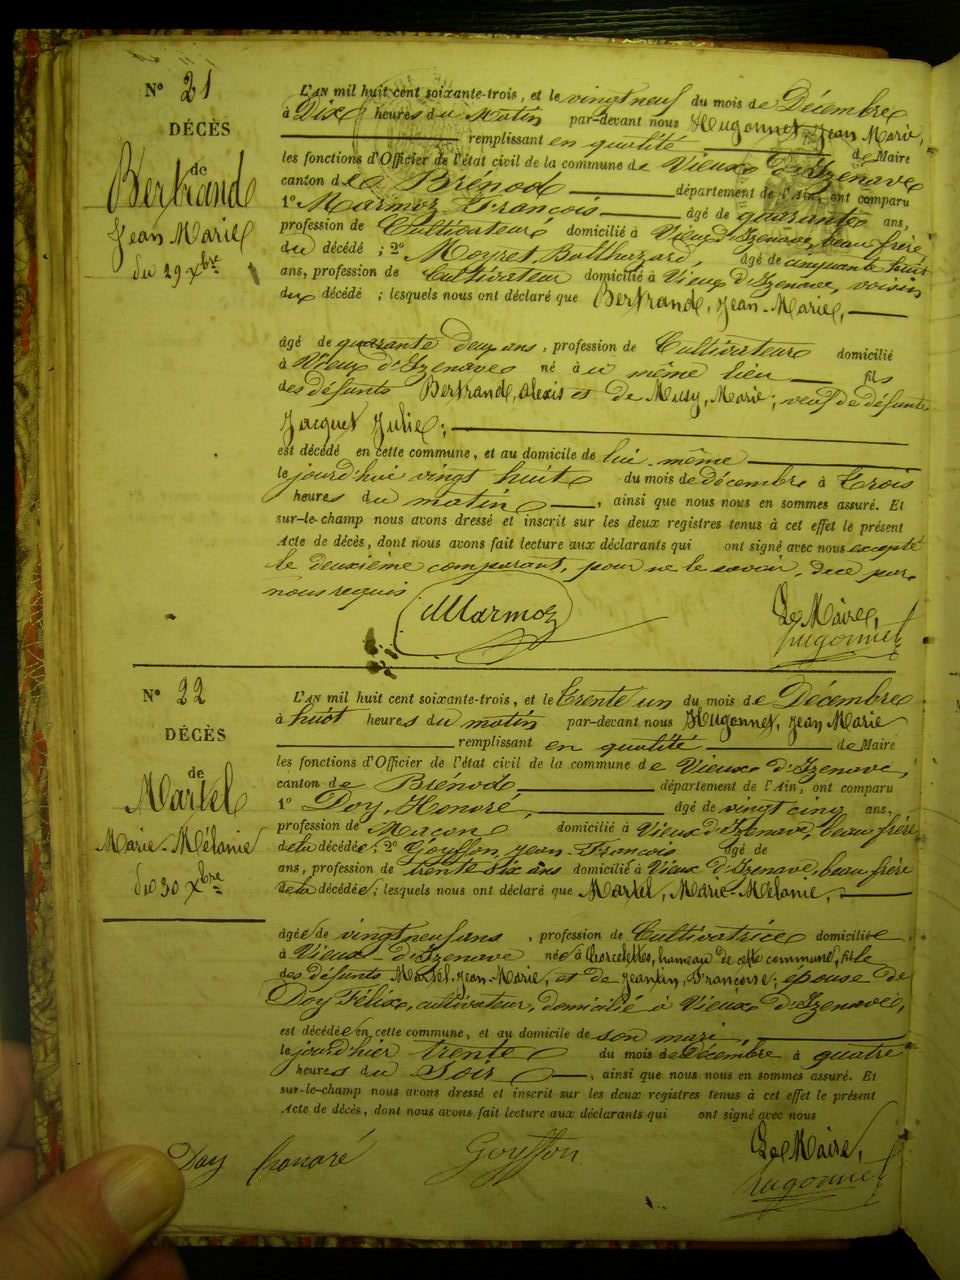 N° 21
DÉCÈS
de
Bertrand
Jean Marie
du 29 Xbre
L'AN mil huit cent soixante-trois, et le vingt neuf du mois de Décembre
à Dix heures du Matin par-devant nous Hugonnet, Jean Marie,
remplissant en qualité de Maire
les fonctions d'Officier de l'état civil de la commune de Vieux d'Izenave
canton de Brénod département de l'Ain, ont comparu
1° Marmoz François âgé de quarante ans,
profession de Cultivateur domicilié à Vieux d'Izenave, beau frère
du décédé ; 2° Moyret, Balthazard, âgé de cinquante huit
ans, profession de Cultivateur domicilié à Vieux d'Izenave, voisin
du décédé ; lesquels nous ont déclaré que Bertrand, Jean-Marie,
âgé de quarante deux ans, profession de Cultivateur domicilié
à Vieux d'Izenave né à u même lieu fils
des défunts Bertrand, Alexis et de Musy, Marie ; veuf de défunte
Jacquet Julie ;
est décédé en cette commune, et au domicile de lui même
le jourd'hui vingt huit du mois de décembre à Trois
heures du matin, ainsi que nous nous en sommes assuré. Et
sur-le-champ nous avons dressé et inscrit sur les deux registres tenus à cet effet le présent
Acte de décès, dont nous avons fait lecture aux déclarants qui ont signé avec nous excepté
le deuxième comparant, pour ne le savoir, de ce par
nous requis
Marmoz
Le Maire,
Hugonnet
N° 22
DÉCÈS
de
Martel
Marie-Mélanie
du 30 Xbre
L'AN mil huit cent soixante-trois, et le Trente un du mois de Décembre
à huit heures du matin par-devant nous Hugonnet, Jean Marie
remplissant en qualité de Maire
les fonctions d'Officier de l'état civil de la commune de Vieux d'Izenave,
canton de Brénod département de l'Ain, ont comparu
1° Doy, Honoré, âgé de vingt cinq ans,
profession de Maçon domicilié à Vieux d'Izenave, beau frère
de la décédée ; 2° Goyffon, Jean-François âgé de
ans, profession de trente six ans domicilié à Vieux d'Izenave, beau frère
de la décédée ; lesquels nous ont déclaré que Martel, Marie-Mélanie,
âgée de vingt neuf ans, profession de Cultivatrice domiciliée
à Vieux-d'Izenave née à Corcelettes, hameau de cette commune, fille
des défunts Martel, Jean-Marie, et de Jeantin, Françoise ; épouse de
Doy Félix, cultivateur, domicilié à Vieux d'Izenave,
est décédée en cette commune, et au domicile de son mari,
le jourd'hier trente du mois de décembre à quatre
heures du Soir, ainsi que nous nous en sommes assuré. Et
sur-le-champ nous avons dressé et inscrit sur les deux registres tenus à cet effet le présent
Acte de décès, dont nous avons fait lecture aux déclarants qui ont signé avec nous
Doy honoré
Goyffon
Le Maire,
Hugonnet